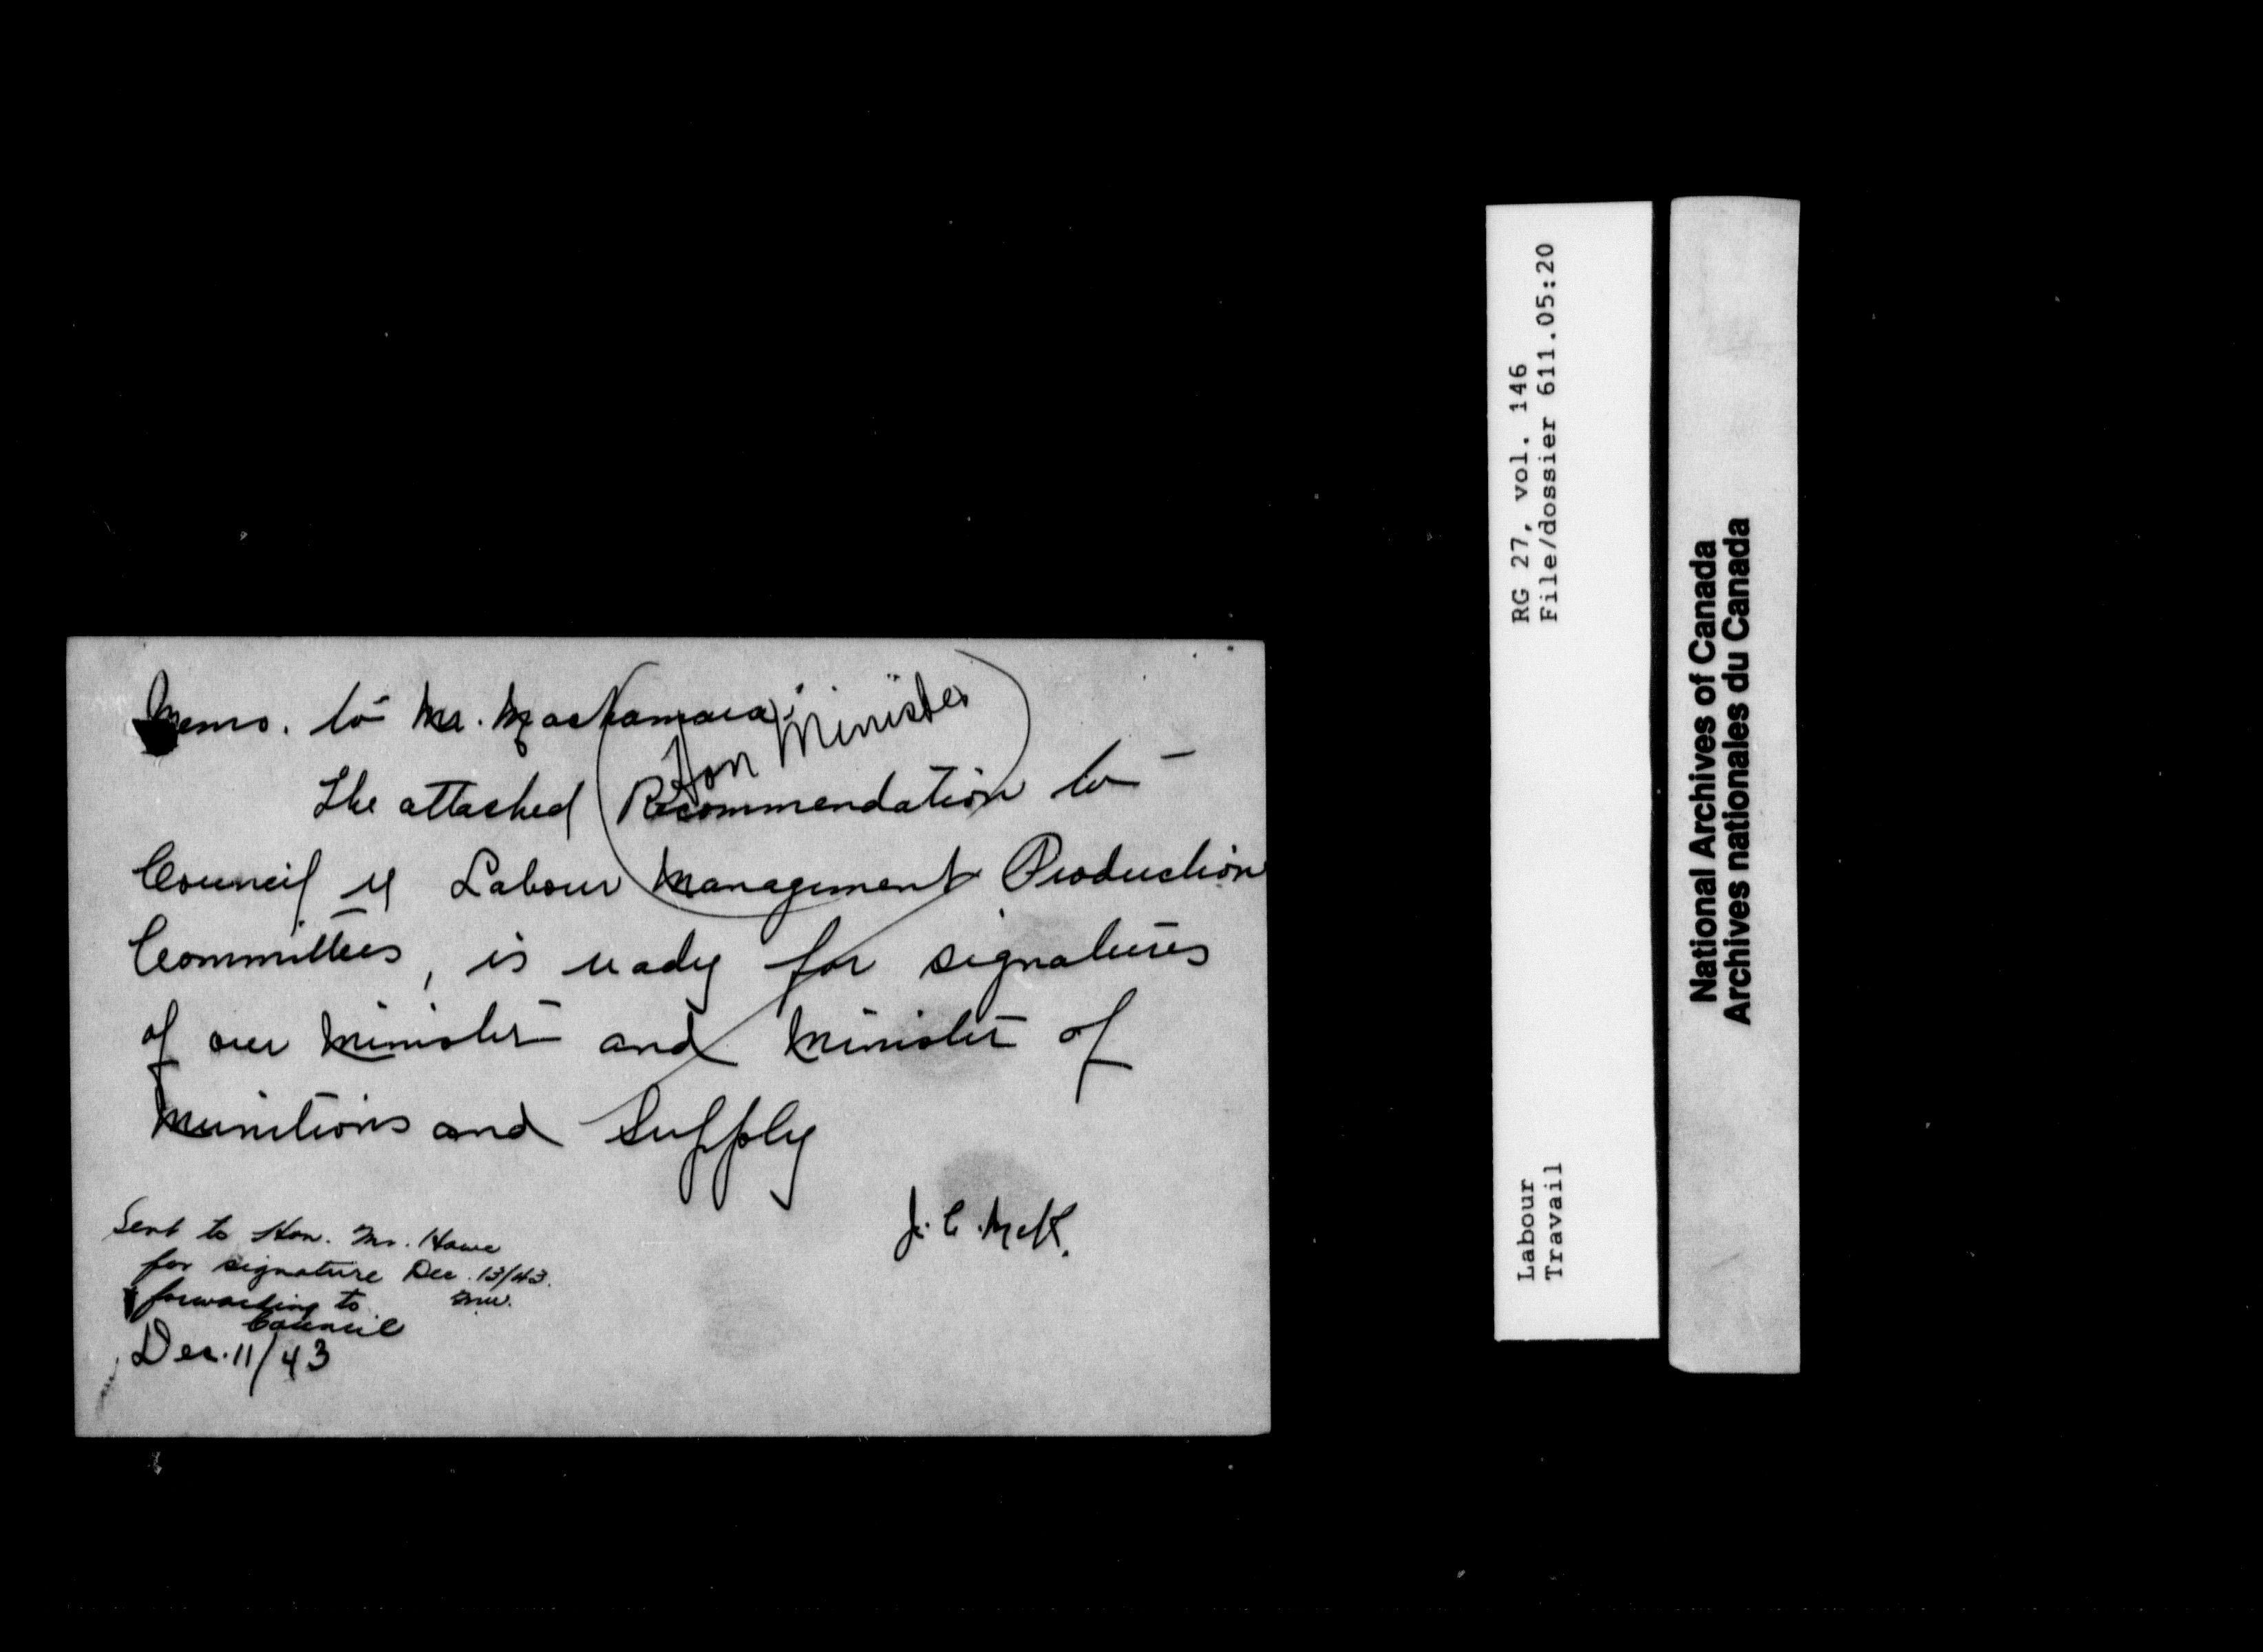 Memo. to Mr. MacNamara:
Hon Minister
The attached Recommendation to
Council re Labour Management Production
Committees, is ready for signatures
of our Minister and Minister of
Munitions and Supply
J. C. McK.
Sent to Hon. Mr. Howe
for signature Dec. 13/43.
& forwarding to
Council
Dec. 11/43
RG 27, vol. 146
File/dossier 611.05:20
Labour
Travail
National Archives of Canada
Archives nationales du Canada